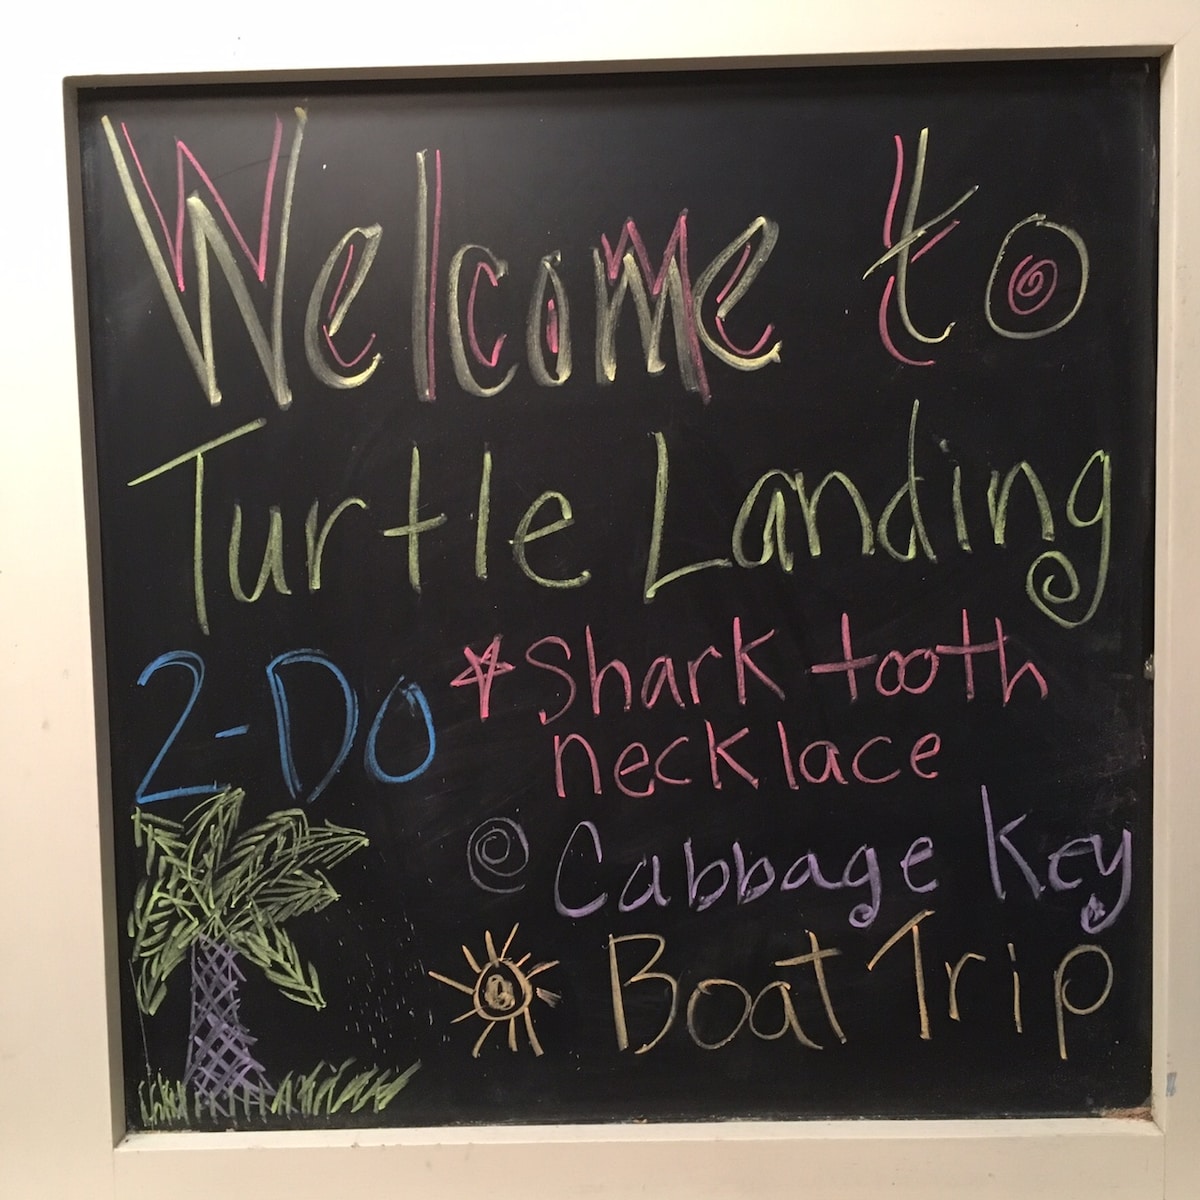 Welcome to
Turtle Landing
2-Do * Shark tooth
necklace
Cabbage Key
Boat Trip